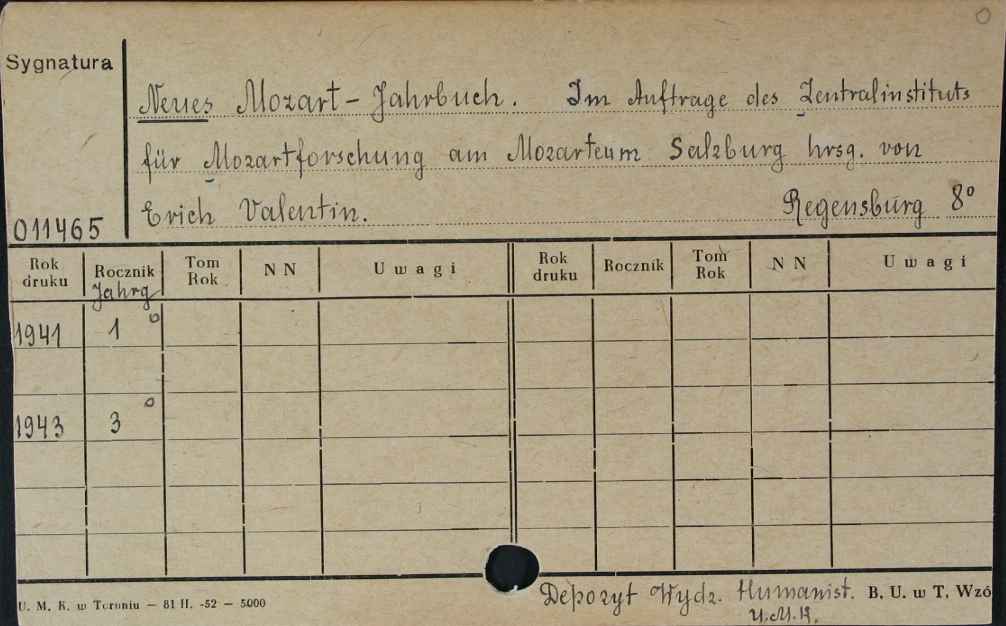 Sygnatura
Neues Mozart-Jahrbuch. Im Auftrage des Zentralinstituts
für Mozartforschung am Mozarteum Salzburg hrsg. von
Erich Valentin. Regensburg 8°
011465
Rok druku Rocznik Jahrg Tom Rok N N Uwagi Rok druku Rocznik Tom Rok N N Uwagi
1941 1
1943 3
U. M. K. w Toruniu — 81 II. -52 — 5000
Depozyt Wydz. Humanist. B. U. w T. Wzó
U.M.K.